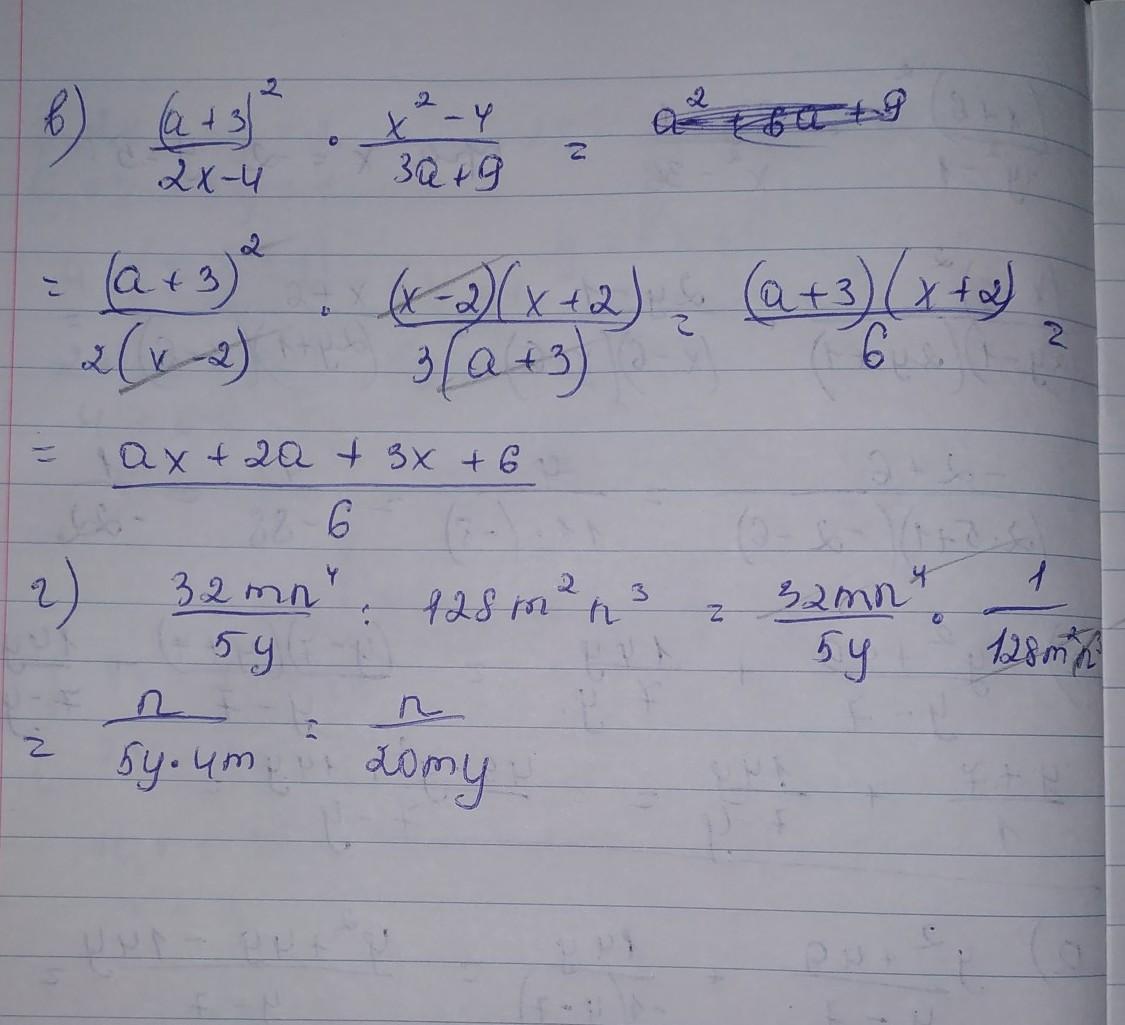 в) (a+3)²/(2x-4) · (x²-4)/(3a+9) =
= (a+3)²/(2(x-2)) · (x-2)(x+2)/(3(a+3)) = (a+3)(x+2)/6 =
= (ax+2a+3x+6)/6
г) 32mn⁴/5y : 128m²n³ = 32mn⁴/5y · 1/128m²n³
= n/(5y·4m) = n/20my